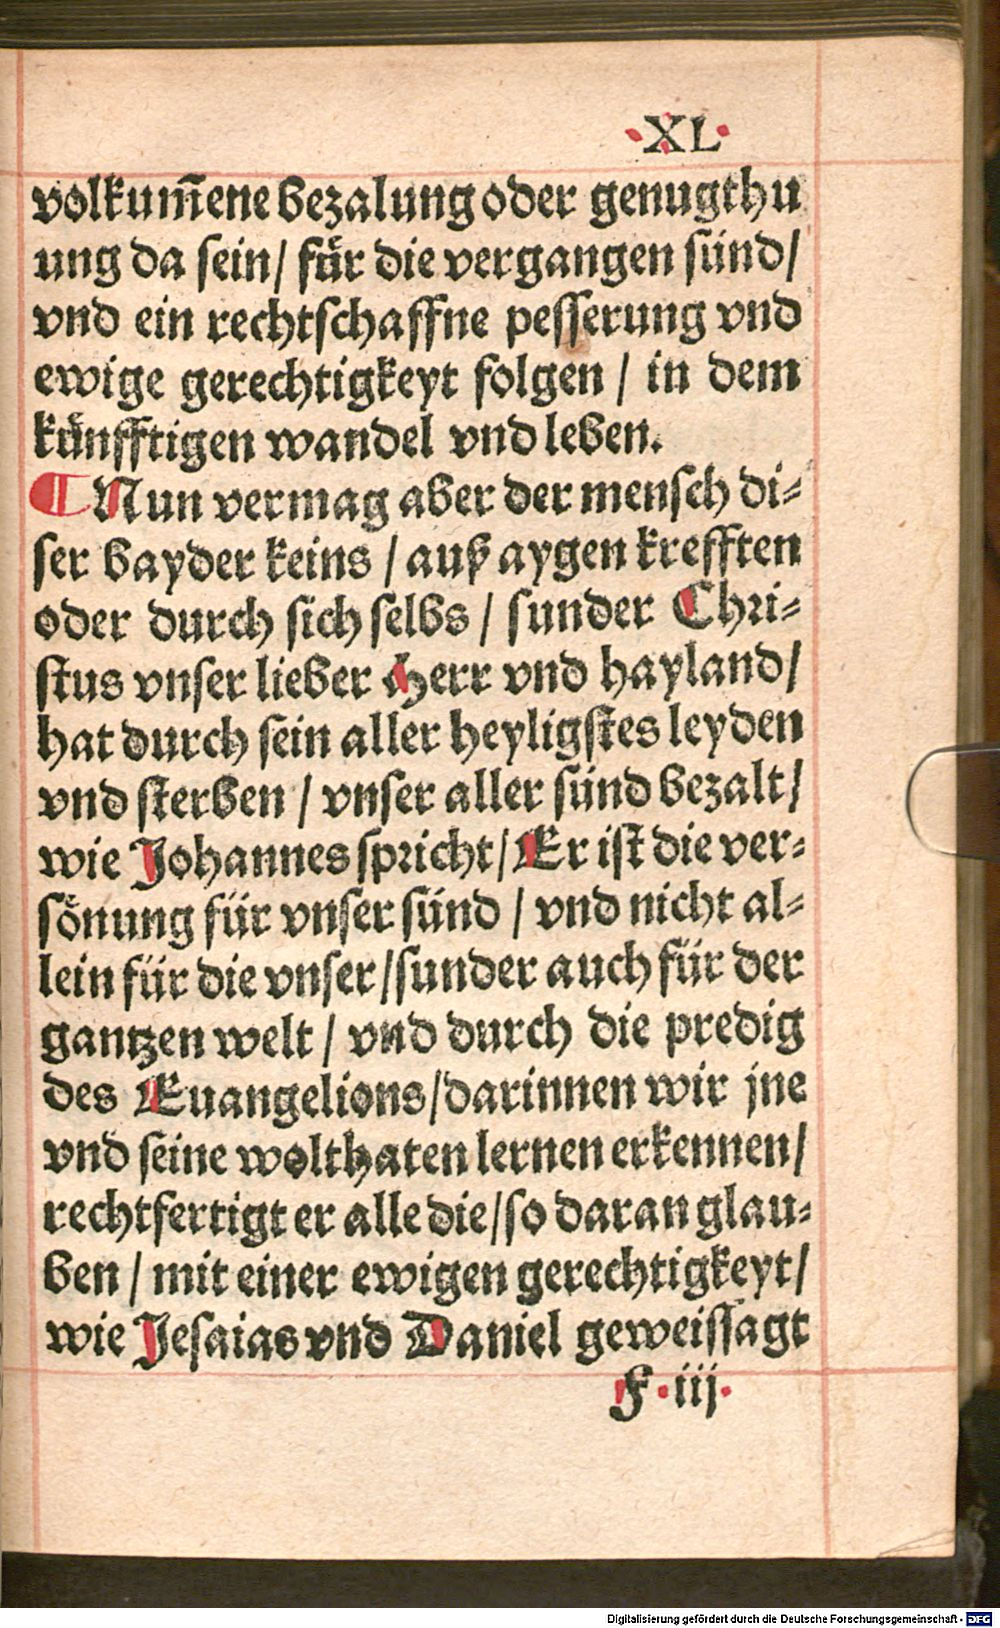 ·XL·
volkum̃ene bezalung oder genugthu
ung da sein/ für die vergangen sünd/
vnd ein rechtschaffne pesserung vnd
ewige gerechtigkeyt folgen / in dem
künfftigen wandel vnd leben.
¶ Nun vermag aber der mensch di-
ser bayder keins / auß aygen krefften
oder durch sich selbs / sunder Chri-
stus vnser lieber Herr vnd hayland/
hat durch sein aller heyligstes leyden
vnd sterben / vnser aller sünd bezalt/
wie Johannes spricht/ Er ist die ver-
sönung für vnser sünd / vnd nicht al-
lein für die vnser/sunder auch für der
gantzen welt / vnd durch die predig
des Euangelions/darinnen wir jne
vnd seine wolthaten lernen erkennen/
rechtfertigt er alle die/so daran glau-
ben / mit einer ewigen gerechtigkeyt/
wie Jesaias vnd Daniel geweissagt
F·iij·
Digitalisierung gefördert durch die Deutsche Forschungsgemeinschaft - DFG